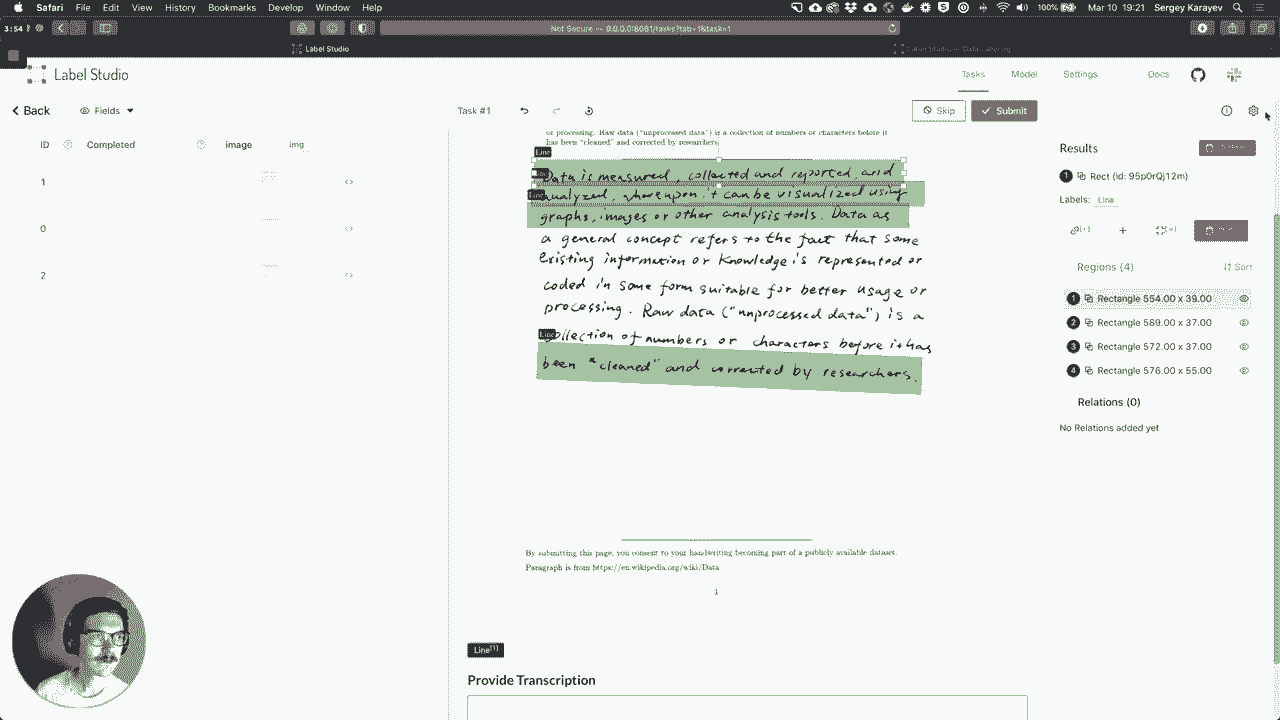 Safari File Edit View History Bookmarks Develop Window Help
100% Mar 10 19:21 Sergey Karayev
3:54
Not Secure — 0.0.0.0:8081/tasks?tab=1&task=1
Label Studio
Label Studio
Tasks Model Settings Docs
Back Fields Task #1 Skip Submit
ID Completed image img
1
0
2
or processing. Raw data ("unprocessed data") is a collection of numbers or characters before it
has been "cleaned" and corrected by researchers
Line
Data is measured, collected and reported, and
analyzed, whereupon it can be visualized using
Line
graphs, images or other analysis tools. Data as
a general concept refers to the fact that some
existing information or knowledge is represented or
coded in some form suitable for better usage or
processing. Raw data ("unprocessed data") is a
Line
collection of numbers or characters before it has
been "cleaned" and corrected by researchers.
By submitting this page, you consent to your handwriting becoming part of a publicly available dataset.
Paragraph is from https://en.wikipedia.org/wiki/Data
1
Line[1]
Provide Transcription
Results
1 Rect (id: 95p0rQj12m)
Labels: Line
Regions (4) Sort
1 Rectangle 554.00 x 39.00
2 Rectangle 589.00 x 37.00
3 Rectangle 572.00 x 37.00
4 Rectangle 576.00 x 55.00
Relations (0)
No Relations added yet